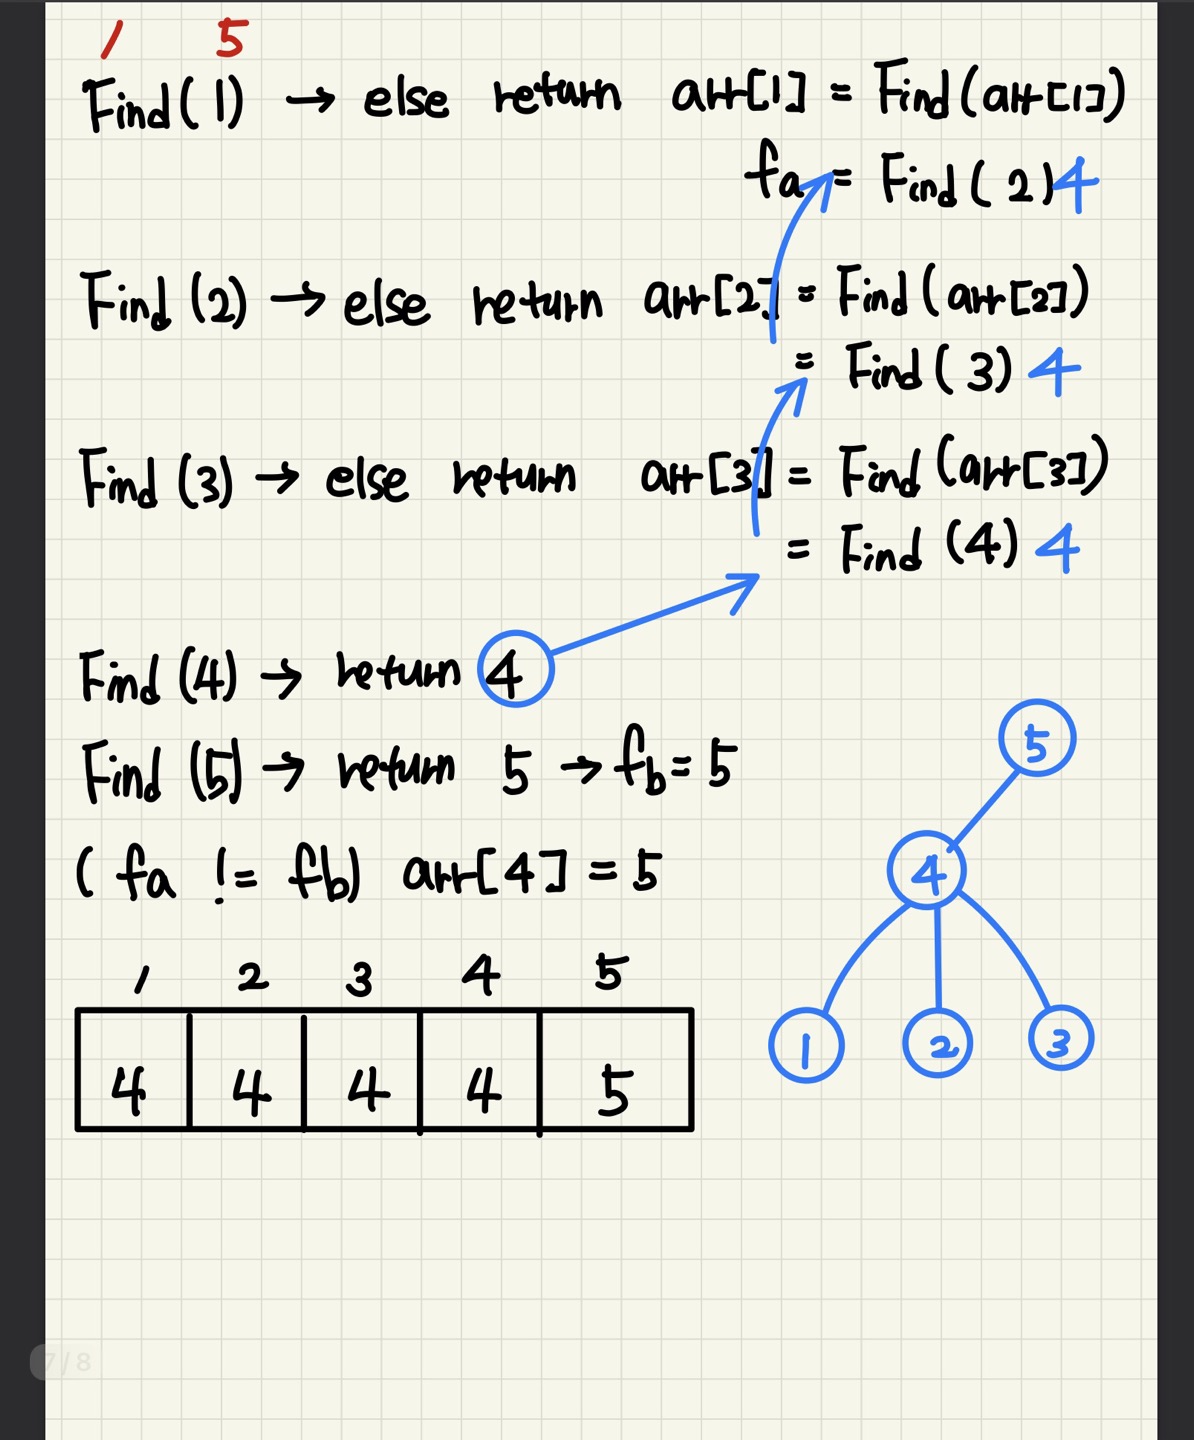 1 5
Find(1) → else return arr[1] = Find(arr[1])
fa = Find(2) 4
Find(2) → else return arr[2] = Find(arr[2])
= Find(3) 4
Find(3) → else return arr[3] = Find(arr[3])
= Find(4) 4
Find(4) → return 4
Find(5) → return 5 → fb = 5
(fa != fb) arr[4] = 5
1 2 3 4 5
4 4 4 4 5
5
4
1 2 3
7/8